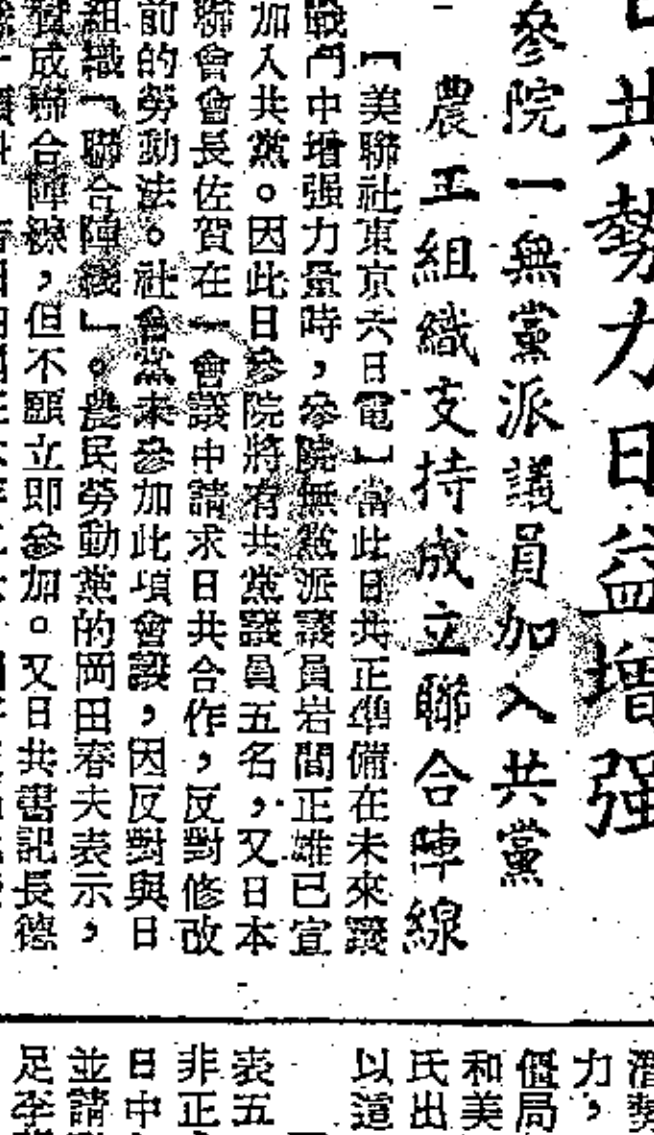 日共勢力日益增强
參院一無黨派議員加入共黨
農工組織支持成立聯合陣線
【美聯社東京六日電】當此日共正準備在未來議
戰鬥中增强力量時，參院無黨派議員岩間正雄已宣
加入共黨。因此日參院將有共黨議員五名，又日本
聯會會長佐賀在一會議中請求日共合作，反對修改
前的勞動法。社會黨未參加此項會議，因反對與日
組織「聯合陣綫」。農民勞動黨的岡田春夫表示，
贊成聯合陣線，但不願立即參加。又日共書記長德
力，
僵局
和美
氏出
以這
表五
非正
日中
並請
足